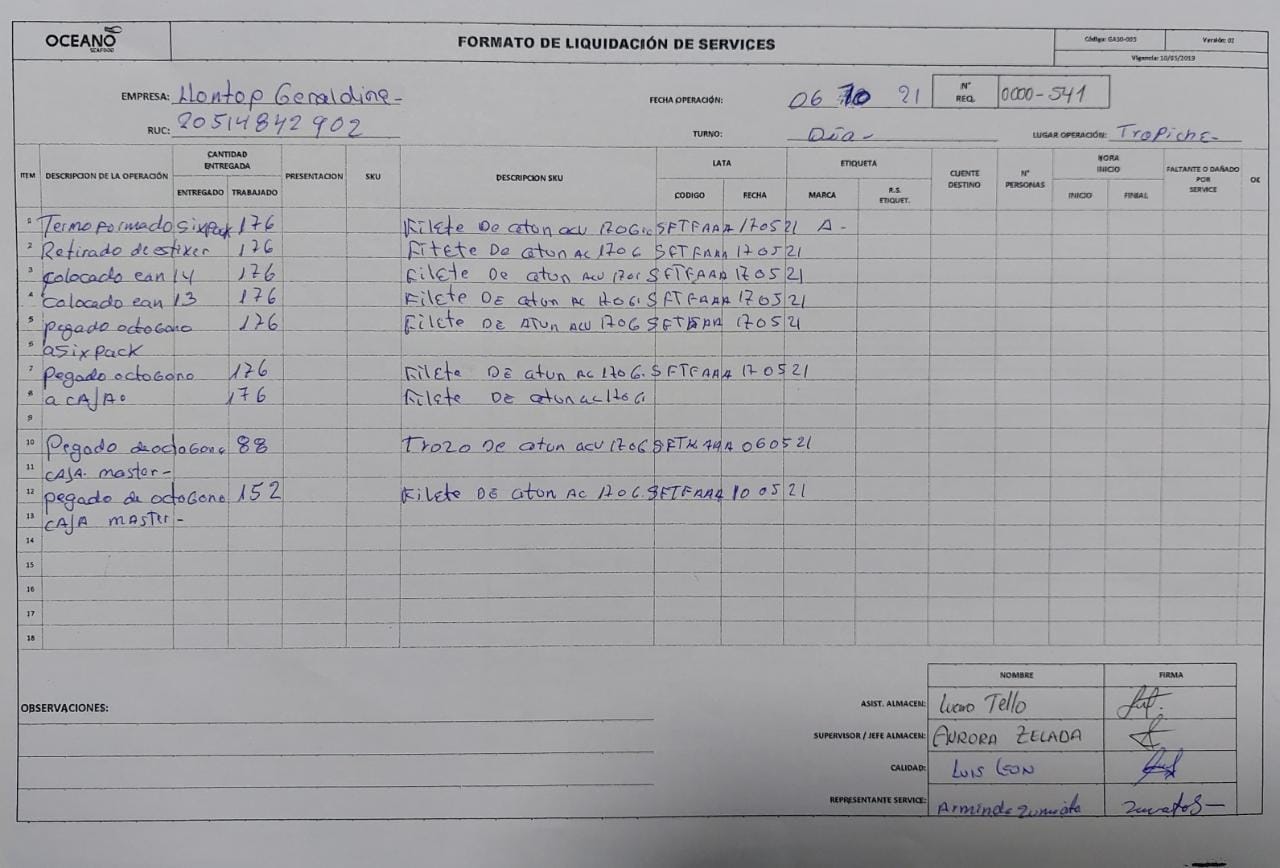 OCEANO SEAFOOD
FORMATO DE LIQUIDACIÓN DE SERVICES
Código: GA10-005 Versión: 02
Vigencia: 10/05/2019
EMPRESA: Llontop Geraldine-
FECHA OPERACIÓN: 06 10 21
N° REQ. 0000-541
RUC: 20514842902
TURNO: Día-
LUGAR OPERACIÓN: TroPiche-
ITEM DESCRIPCION DE LA OPERACIÓN CANTIDAD ENTREGADA PRESENTACION SKU DESCRIPCION SKU LATA ETIQUETA CLIENTE DESTINO N° PERSONAS HORA INICIO FALTANTE O DAÑADO POR SERVICE OK
ENTREGADO TRABAJADO CODIGO FECHA MARCA R.S. ETIQUET. INICIO FINIAL
1 Termoformado sixpack 176 Filete De atun acu 170G. SFTFAAA 170521 A-
2 Retirado de stixer 176 Filete De atun AC 170G SFTFAAA 170521
3 Colocado ean 14 176 Filete De atun acu 170G SFTFAAA 170521
4 Colocado ean 13 176 Filete DE atun AC 170G. SFTFAAA 170521
5 pegado octogono 176 Filete DE ATUN ACU 170G SFTFAAA 170521
6 a SixPack
7 Pegado octogono 176 Filete DE atun AC 170G. SFTFAAA 170521
8 a CAJA. 176 Filete DE atun ac 170G
9
10 Pegado de octogono 88 Trozo De atun acu 170G 060521
11 CAJA. master-
12 pegado de octogono 152 Filete DE atun AC 170G. SFTFAAA 100521
13 CAJA master-
14
15
16
17
18
NOMBRE FIRMA
OBSERVACIONES:
ASIST. ALMACEN: Lucero Tello
SUPERVISOR / JEFE ALMACEN: AURORA ZELADA
CALIDAD: LUIS LEON
REPRESENTANTE SERVICE: Arminda